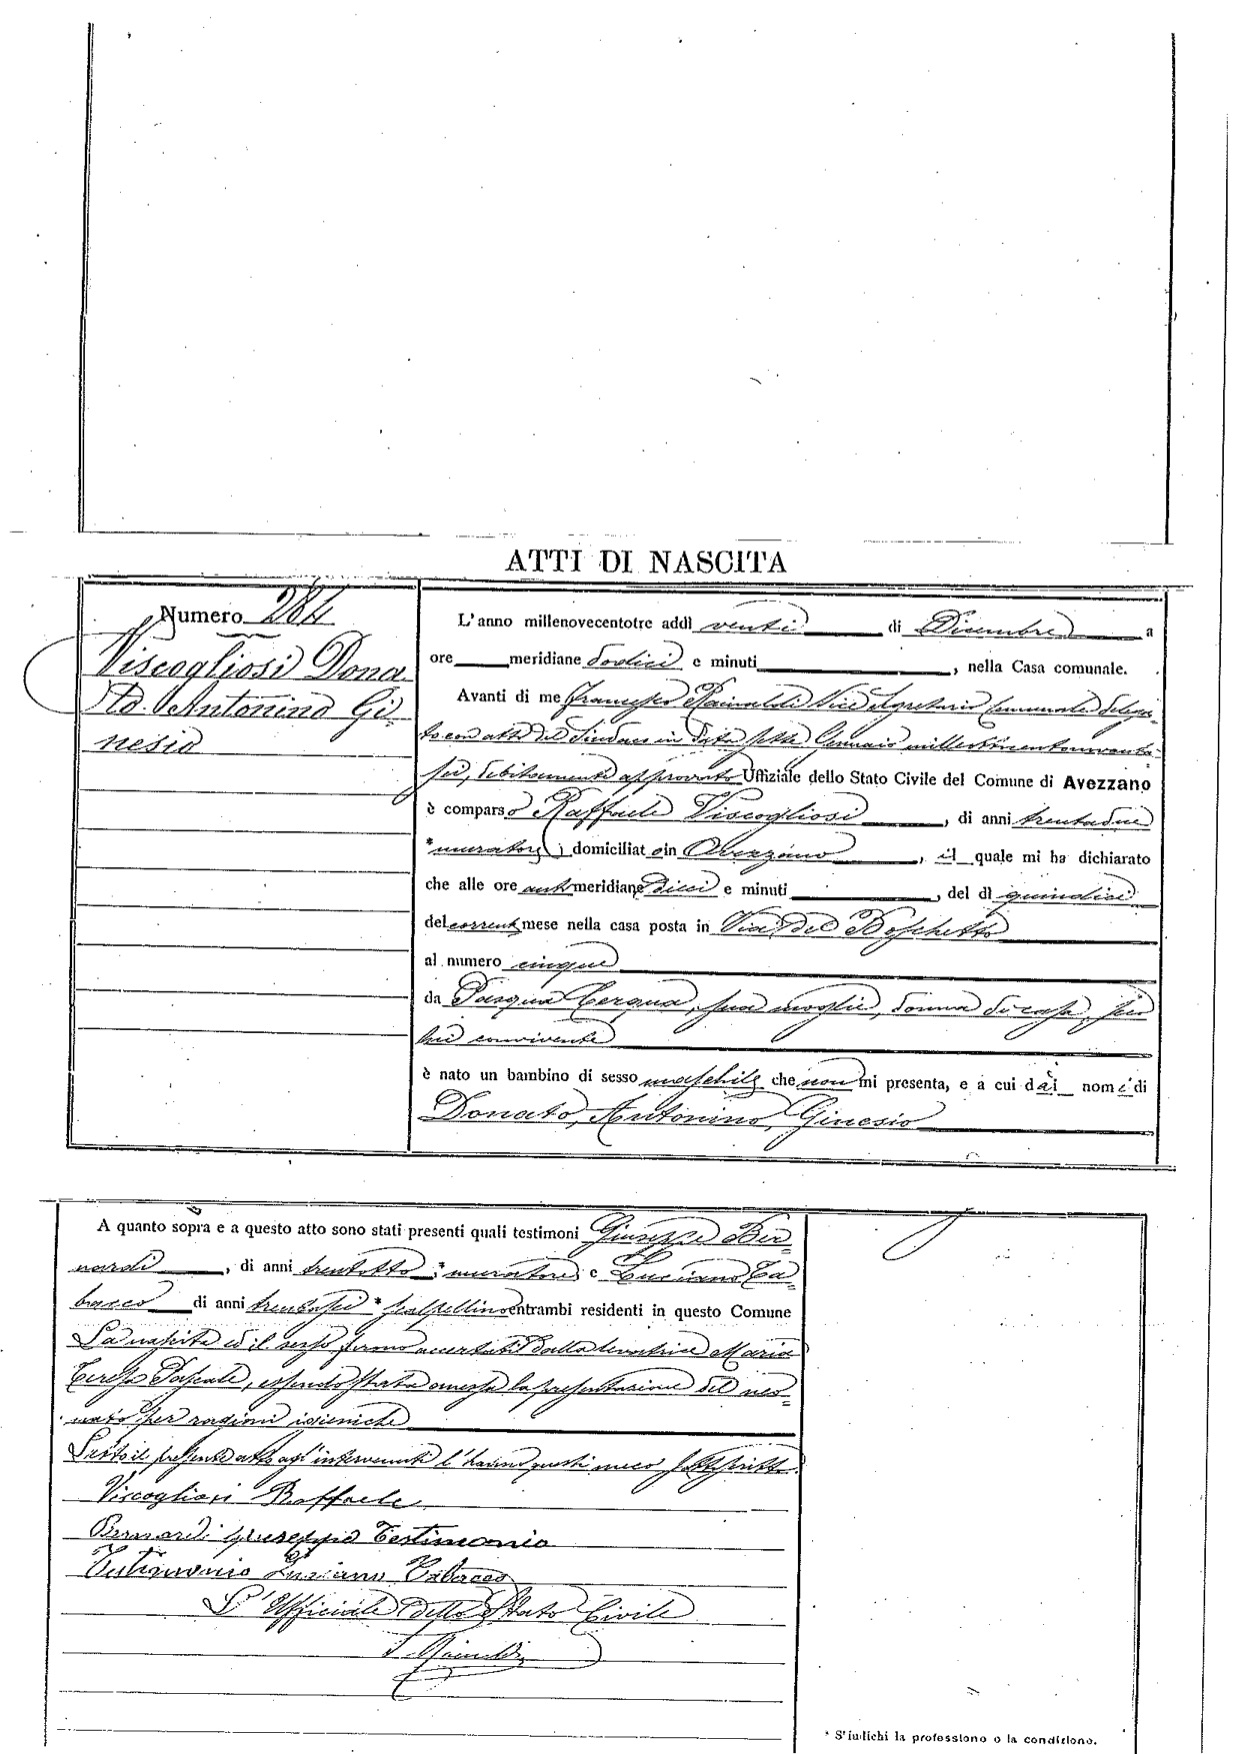 ATTI DI NASCITA
Numero 284
Viscogliosi Dona
to Antonino Gi-
nesio
L'anno millenovecentotre addì venti di Dicembre a
ore meridiane dodici e minuti , nella Casa comunale.
Avanti di me Francesco Rainaldi Vice Segretario Comunale delega-
to con atto del Sindaco in data sette Gennaio millenovecento
sei, debitamente approvato Uffiziale dello Stato Civile del Comune di Avezzano
è comparso Raffaele Viscogliosi , di anni trentadue
*muratore domiciliato in Avezzano , il quale mi ha dichiarato
che alle ore antimeridiane dieci e minuti , del dì quindici
del corrente mese nella casa posta in Via del Boschetto
al numero cinque
da Pasqua Cerqua, sua moglie, donna di casa, seco
lui convivente
è nato un bambino di sesso maschile che non mi presenta, e a cui dà i nomi di
Donato, Antonino, Ginesio
A quanto sopra e a questo atto sono stati presenti quali testimoni Giuseppe Ber=
nardi , di anni trentotto * muratore e Luciano Ta=
bacco di anni trentasei * scalpellino entrambi residenti in questo Comune
La nascita ed il sesso furono accertati dalla levatrice Maria
Teresa Pascale, essendo stata omessa la presentazione del neo=
nato per ragioni igieniche
Letto il presente atto agl'intervenuti l'hanno questi meco sottoscritto.
Viscogliosi Raffaele
Bernardi Giuseppe Testimonio
Testimonio Luciano Tabacco
L'Ufficiale dello Stato Civile
F. Rainaldi
* S'indichi la professione o la condizione.